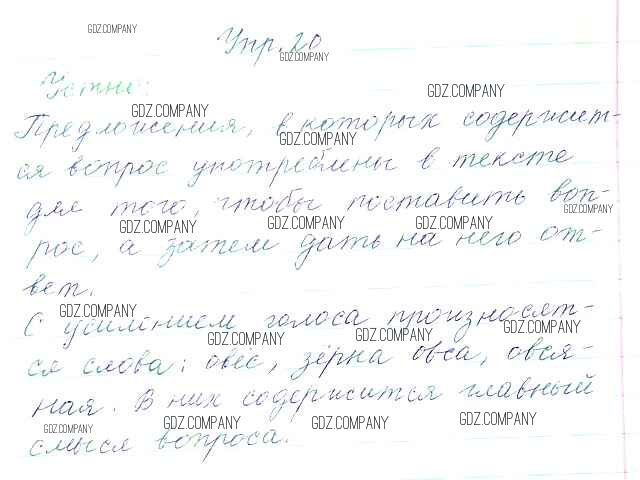 GDZ.COMPANY
Упр. 20
GDZ.COMPANY
Устно:
GDZ.COMPANY
GDZ.COMPANY
Предложения, в которых содержит-
GDZ.COMPANY
ся вопрос употреблены в тексте
для того, чтобы поставить воп-
GDZ.COMPANY
GDZ.COMPANY GDZ.COMPANY GDZ.COMPANY
рос, а затем дать на него от-
вет.
GDZ.COMPANY
С усилением голоса произносят-
GDZ.COMPANY GDZ.COMPANY GDZ.COMPANY
ся слова: овёс, зёрна овса, овся-
ная. В них содержится главный
GDZ.COMPANY GDZ.COMPANY GDZ.COMPANY GDZ.COMPANY
смысл вопроса.